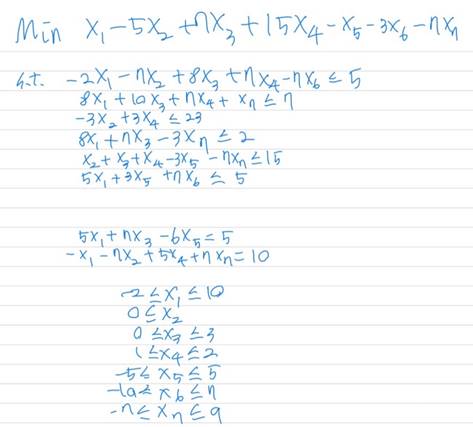 Min x₁ - 5x₂ + 7x₃ + 15x₄ - x₅ - 3x₆ - 7x₇
s.t. -2x₁ - 7x₂ + 8x₃ + 7x₄ - 7x₆ ≤ 5
8x₁ + 10x₃ + 7x₄ + x₇ ≤ 7
-3x₂ + 3x₄ ≤ 23
8x₁ + 7x₃ - 3x₇ ≤ 2
x₂ + x₃ + x₄ - 3x₅ - 7x₇ ≤ 15
5x₁ + 3x₅ + 7x₆ ≤ 5
5x₁ + 7x₃ - 6x₅ = 5
-x₁ - 7x₂ + 5x₄ + 7x₇ = 10
-2 ≤ x₁ ≤ 10
0 ≤ x₂
0 ≤ x₃ ≤ 3
1 ≤ x₄ ≤ 2
-5 ≤ x₅ ≤ 5
-10 ≤ x₆ ≤ 7
-7 ≤ x₇ ≤ 9